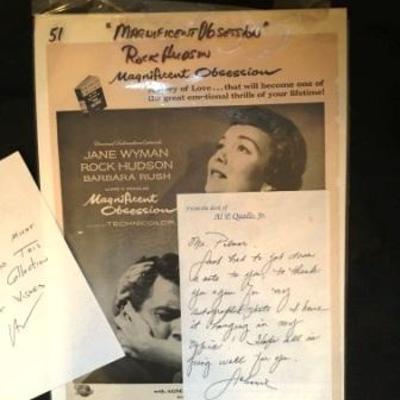 51
"MAGNIFICENT OBSESSION"
ROCK HUDSON
Magnificent Obsession
ry of Love...that will become one of
the great emotional thrills of your lifetime!
JANE WYMAN
ROCK HUDSON
BARBARA RUSH
Magnificent
Obsession
TECHNICOLOR
with AGNES
MUST
THIS
Collection
WISHES
From the desk of
Al P.
Mr.
Just had to get down
a note to you to thank
you again for my
autographed photo I have
it hanging in my
office! Hope all is
going well for you.